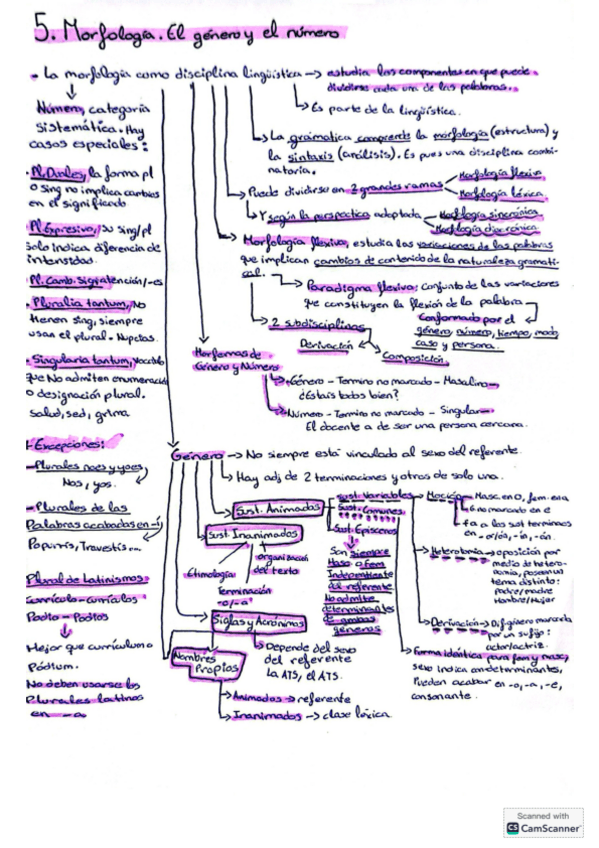 5. Morfología. El género y el número
- La morfología como disciplina lingüística → estudia los componentes en que puede
dividirse cada una de las palabras.
↳ Es parte de la lingüística.
↳ La gramática comprende la morfología (estructura) y
la sintaxis (análisis). Es pues una disciplina combi-
natoria.
→ Puede dividirse en 2 grandes ramas
Morfología flexiva
Morfología léxica.
↳ Y según la perspectiva adoptada
Morfología sincrónica
Morfología diacrónica
→ Morfología flexiva, estudia las variaciones de las palabras
que implican cambios de contenido de la naturaleza gramati-
cal.
→ Paradigma flexivo: Conjunto de las variaciones
que constituyen la flexión de la palabra
Conformado por el
género, número, tiempo, modo,
caso y persona.
→ 2 subdisciplinas
Derivación
Composición.
Número, categoría
sistemática. Hay
casos especiales:
- Pl. Duales, la forma pl
o sing no implica cambios
en el significado
- Pl Expresivo, su sing/pl
solo indica diferencia de
intensidad.
- Pl. Camb. Sig: atención/-es
- Pluralia tantum, No
tienen sing, siempre
usan el plural. Nupcias.
- Singularia tantum, Vocablo
que No admiten enumeración
o designación plural.
Salud, sed, grima
- Excepciones:
- Plurales noes y yoes
Nos, yos.
- Plurales de las
Palabras acabadas en -i
Popurrís, Travestis...
Plural de Latinismos
Currículo - currículos
Podio - Podios
Mejor que currículum o
Pódium.
No deben usarse los
Plurales latinos
en -a
Morfemas de
Género y Número
→ Género - Termino no marcado - Masculino
¿Estáis todos bien?
→ Número - Termino no marcado - Singular
El docente a de ser una persona cercana.
Género → No siempre está vinculado al sexo del referente.
↳ Hay adj de 2 terminaciones y otros de solo uno.
Sust. Animados
Sust. Variables
Sust. Comunes
Sust. Epicenos
Son siempre
Masc o fem
Independiente
del referente
No admite
determinantes
de ambos
géneros
→ Moción - Masc en o, fem en a
ó no marcado en e
f a a los sust terminaos
en -or/ós, -ín, -ón.
→ Heteronimia → oposición por
medio de hetero-
nomia, poseen un
tema distinto:
padre/madre
Hombre/Mujer
→ Derivación → Dif género marcada
por un sufijo:
actor/actriz.
→ Forma idéntica para fem y masc,
sexo indica con determinantes,
Pueden acabar en -o, -a, -e,
consonante.
Sust Inanimados
Etimología
Terminación
-o/-a
organización
del texto
Siglas y Acrónimos
↳ Depende del sexo
del referente
La ATS, el ATS.
Nombres
Propios
→ Animados → referente
→ Inanimados → clase léxica.
Scanned with
CS CamScanner